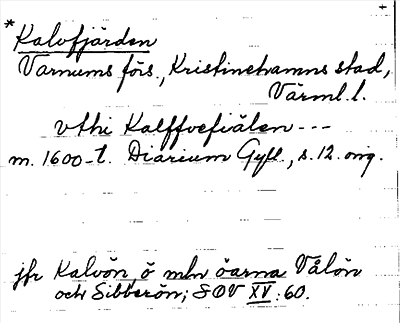 *Kalvfjärden
Varnums förs., Kristinehamns stad,
Värml. l.
vthi Kalffvefiälen ---
m. 1600-t. Diarium Gyll., s. 12. orig.
jfr Kalvön, ö mln öarna Vålön
och Sibberön; SOV XV:60.